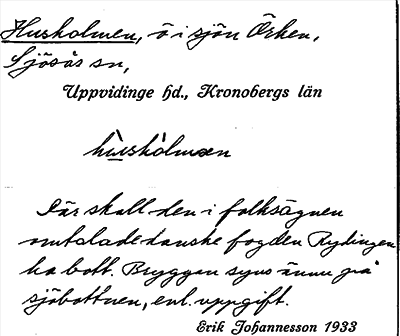 Husholmen, ö i sjön Örken,
Sjösås sn,
Uppvidinge hd., Kronobergs län
hùsholmen
Där skall den i folksägnen
omtalade danske fogden Rydingen
ha bott. Bryggan syns ännu på
sjöbottnen, enl. uppgift.
Erik Johannesson 1933